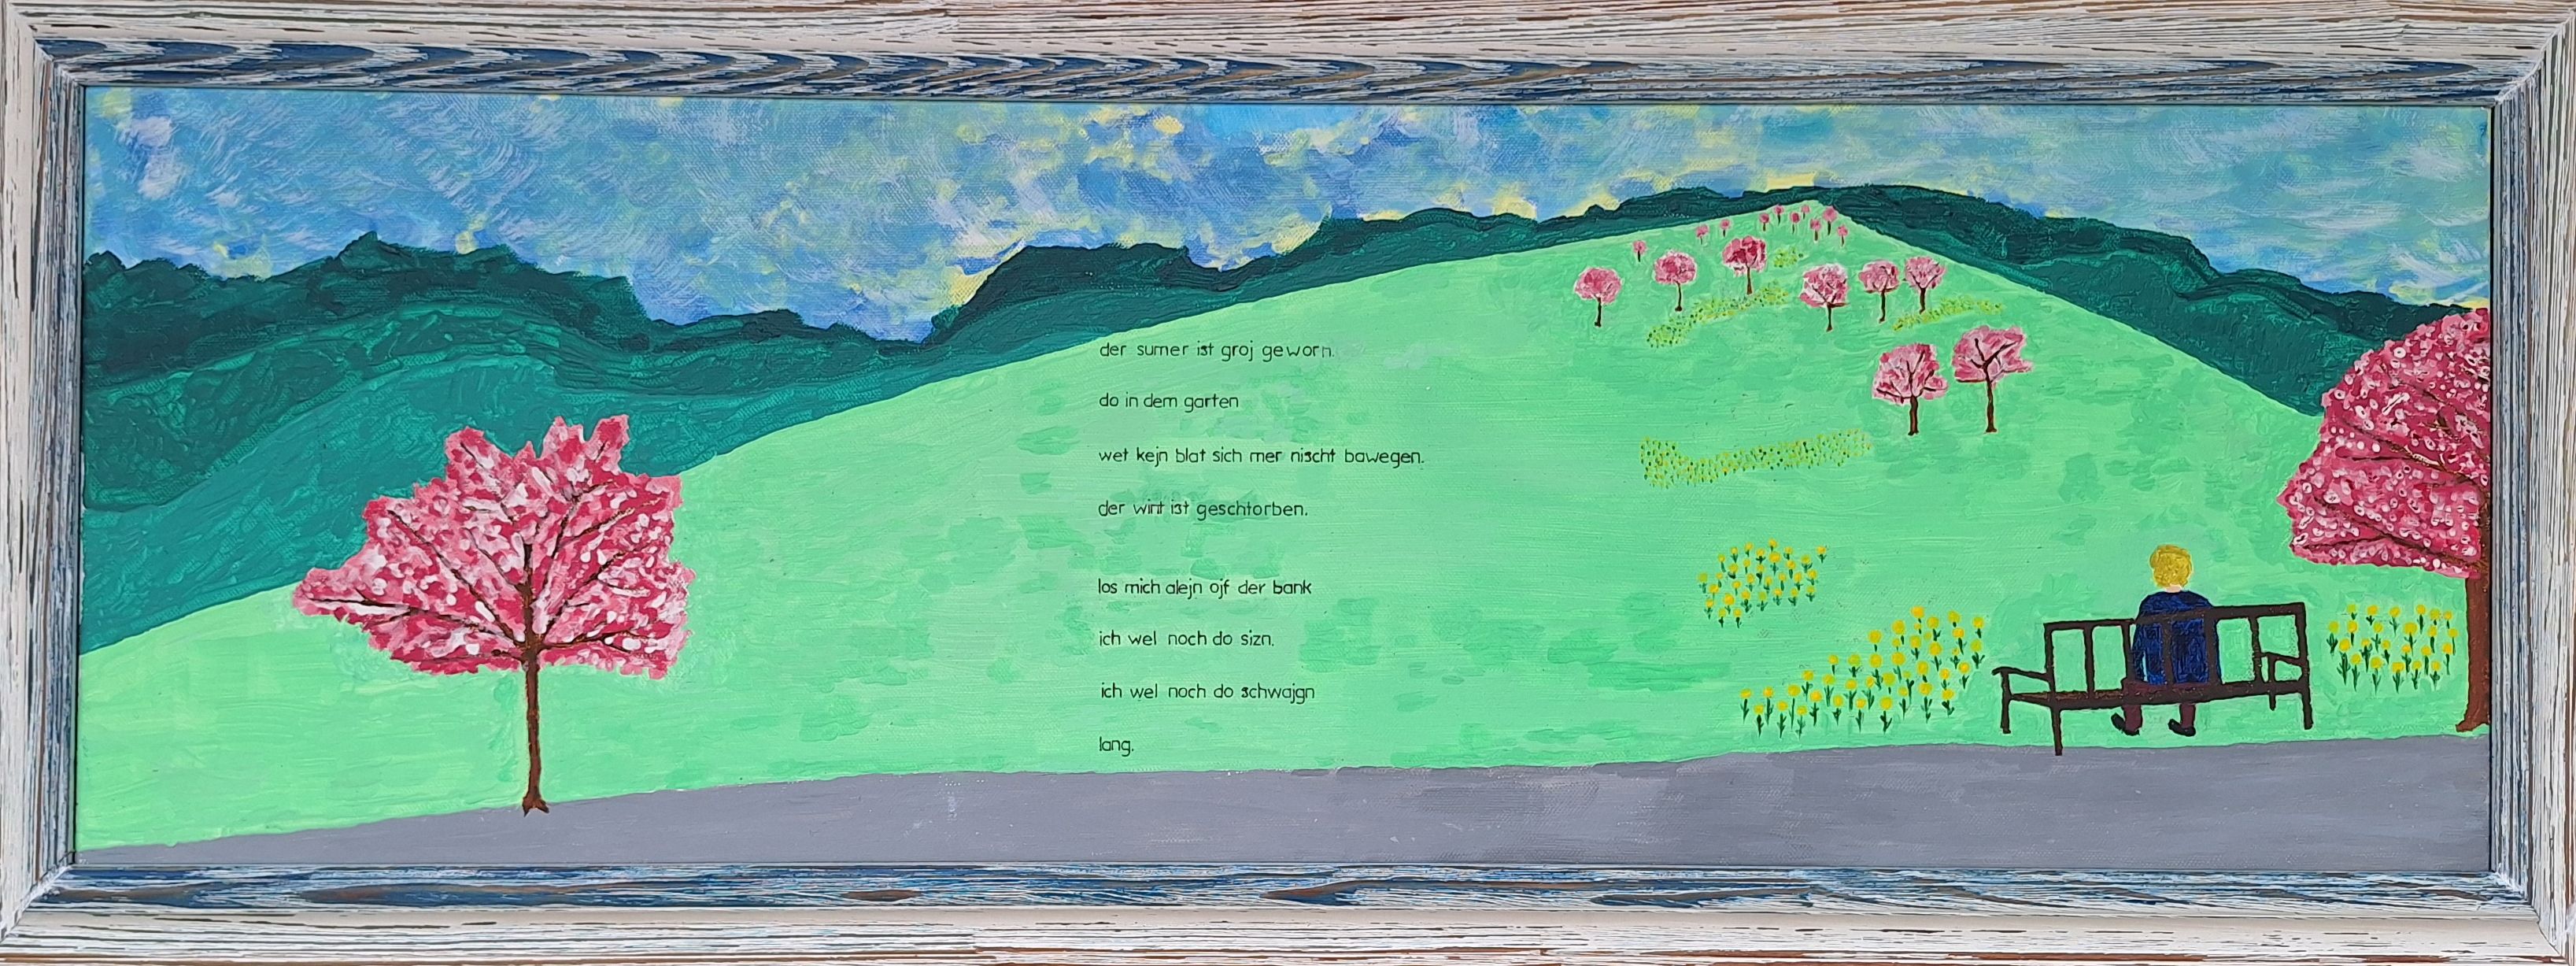 der sumer ist groj geworn.
do in dem garten
wet kejn blat sich mer nischt bawegen.
der wint ist geschtorben.
los mich alejn ojf der bank
ich wel noch do sizn.
ich wel noch do schwajgn
lang.